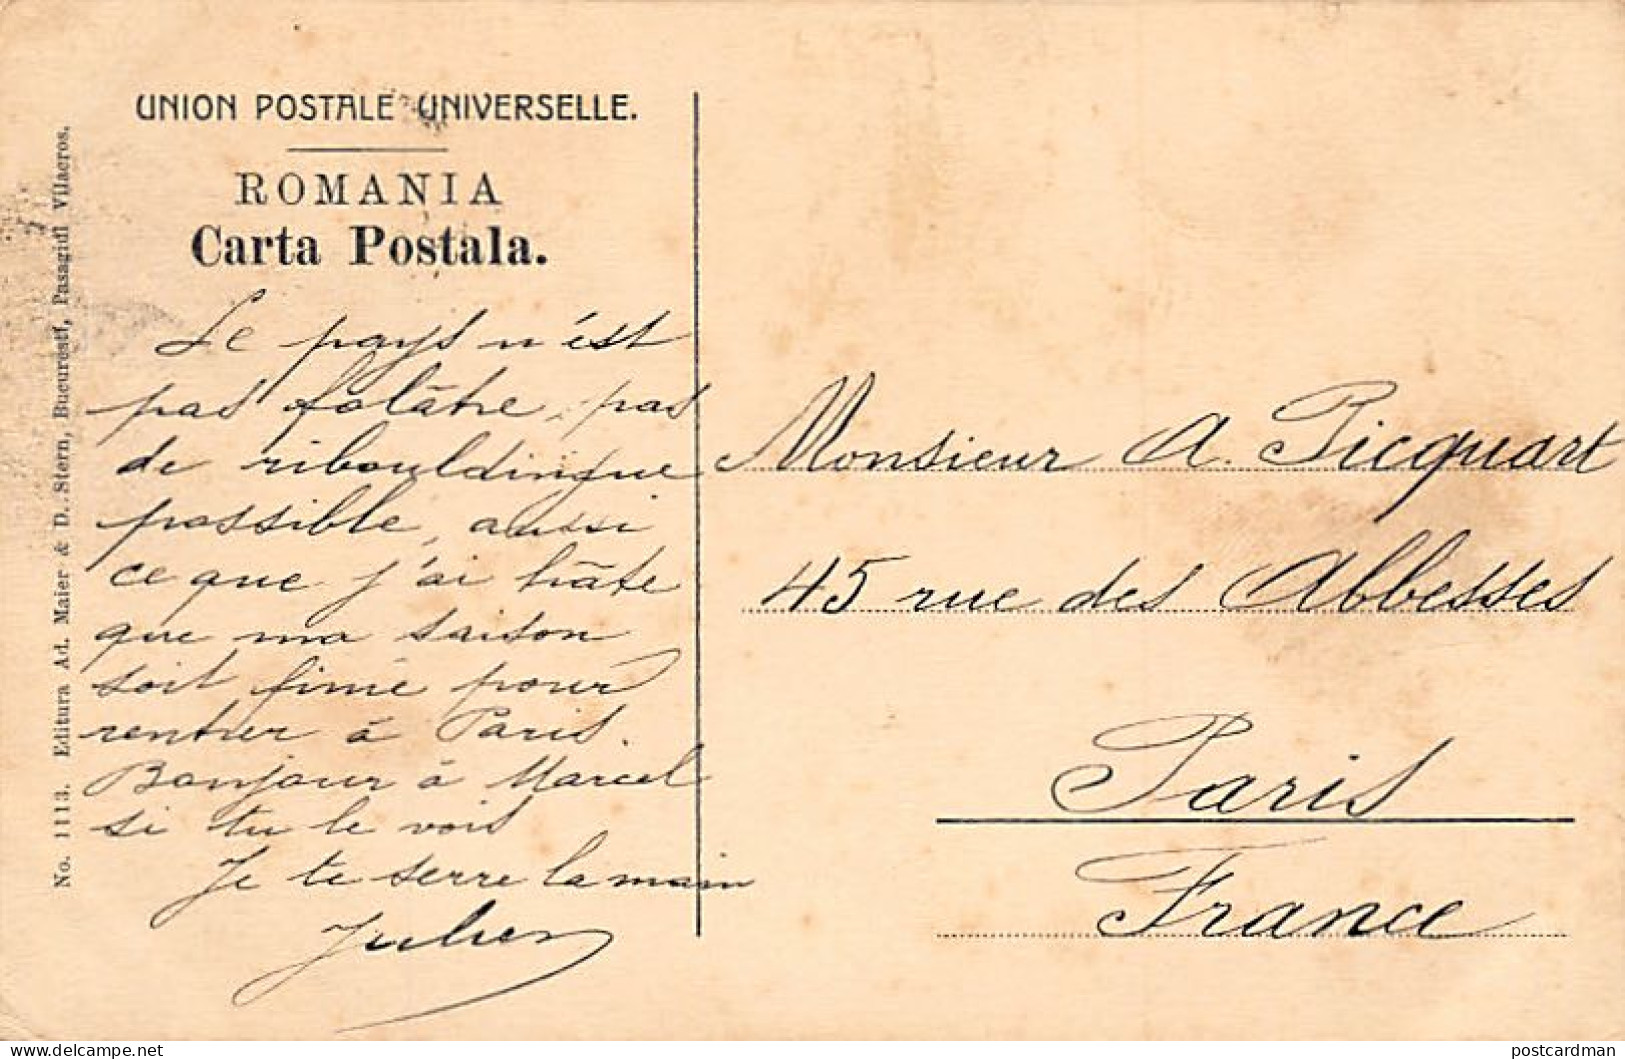 UNION POSTALE UNIVERSELLE.
ROMANIA
Carta Postala.
No. 1113. Editura Ad. Maier & D. Stern, Bucuresti, Pasagiul Vilacros.
Le pays n'est
pas folâtre, pas
de ribouldingue
possible, aussi
ce que j'ai hâte
que ma saison
soit finie pour
rentrer à Paris.
Bonjour à Marcel
si tu le vois
Je te serre la main
Julien
Monsieur A. Picquart
45 rue des Abbesses
Paris
France
delcampe.net
postcardman